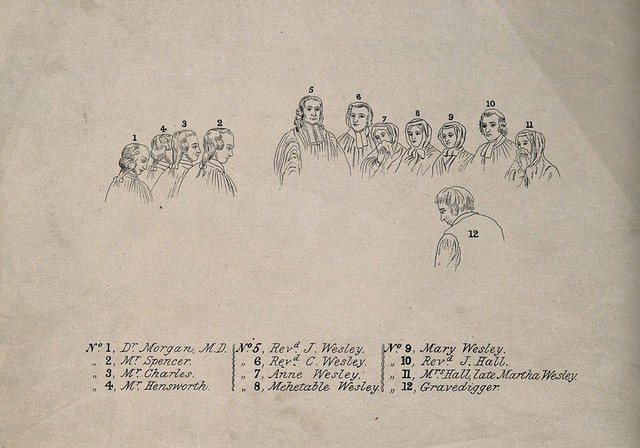 5
6
10
1
4
3
2
7
8
9
11
12
Nº 1, Dr Morgan, M.D.
„ 2, Mr Spencer.
„ 3, Mr Charles.
„ 4, Mr Hensworth.
Nº 5, Revd J. Wesley.
„ 6, Revd C. Wesley.
„ 7, Anne Wesley.
„ 8, Mehetable Wesley.
Nº 9, Mary Wesley.
„ 10, Revd J. Hall.
„ 11, Mrs Hall, late Martha Wesley.
„ 12, Gravedigger.